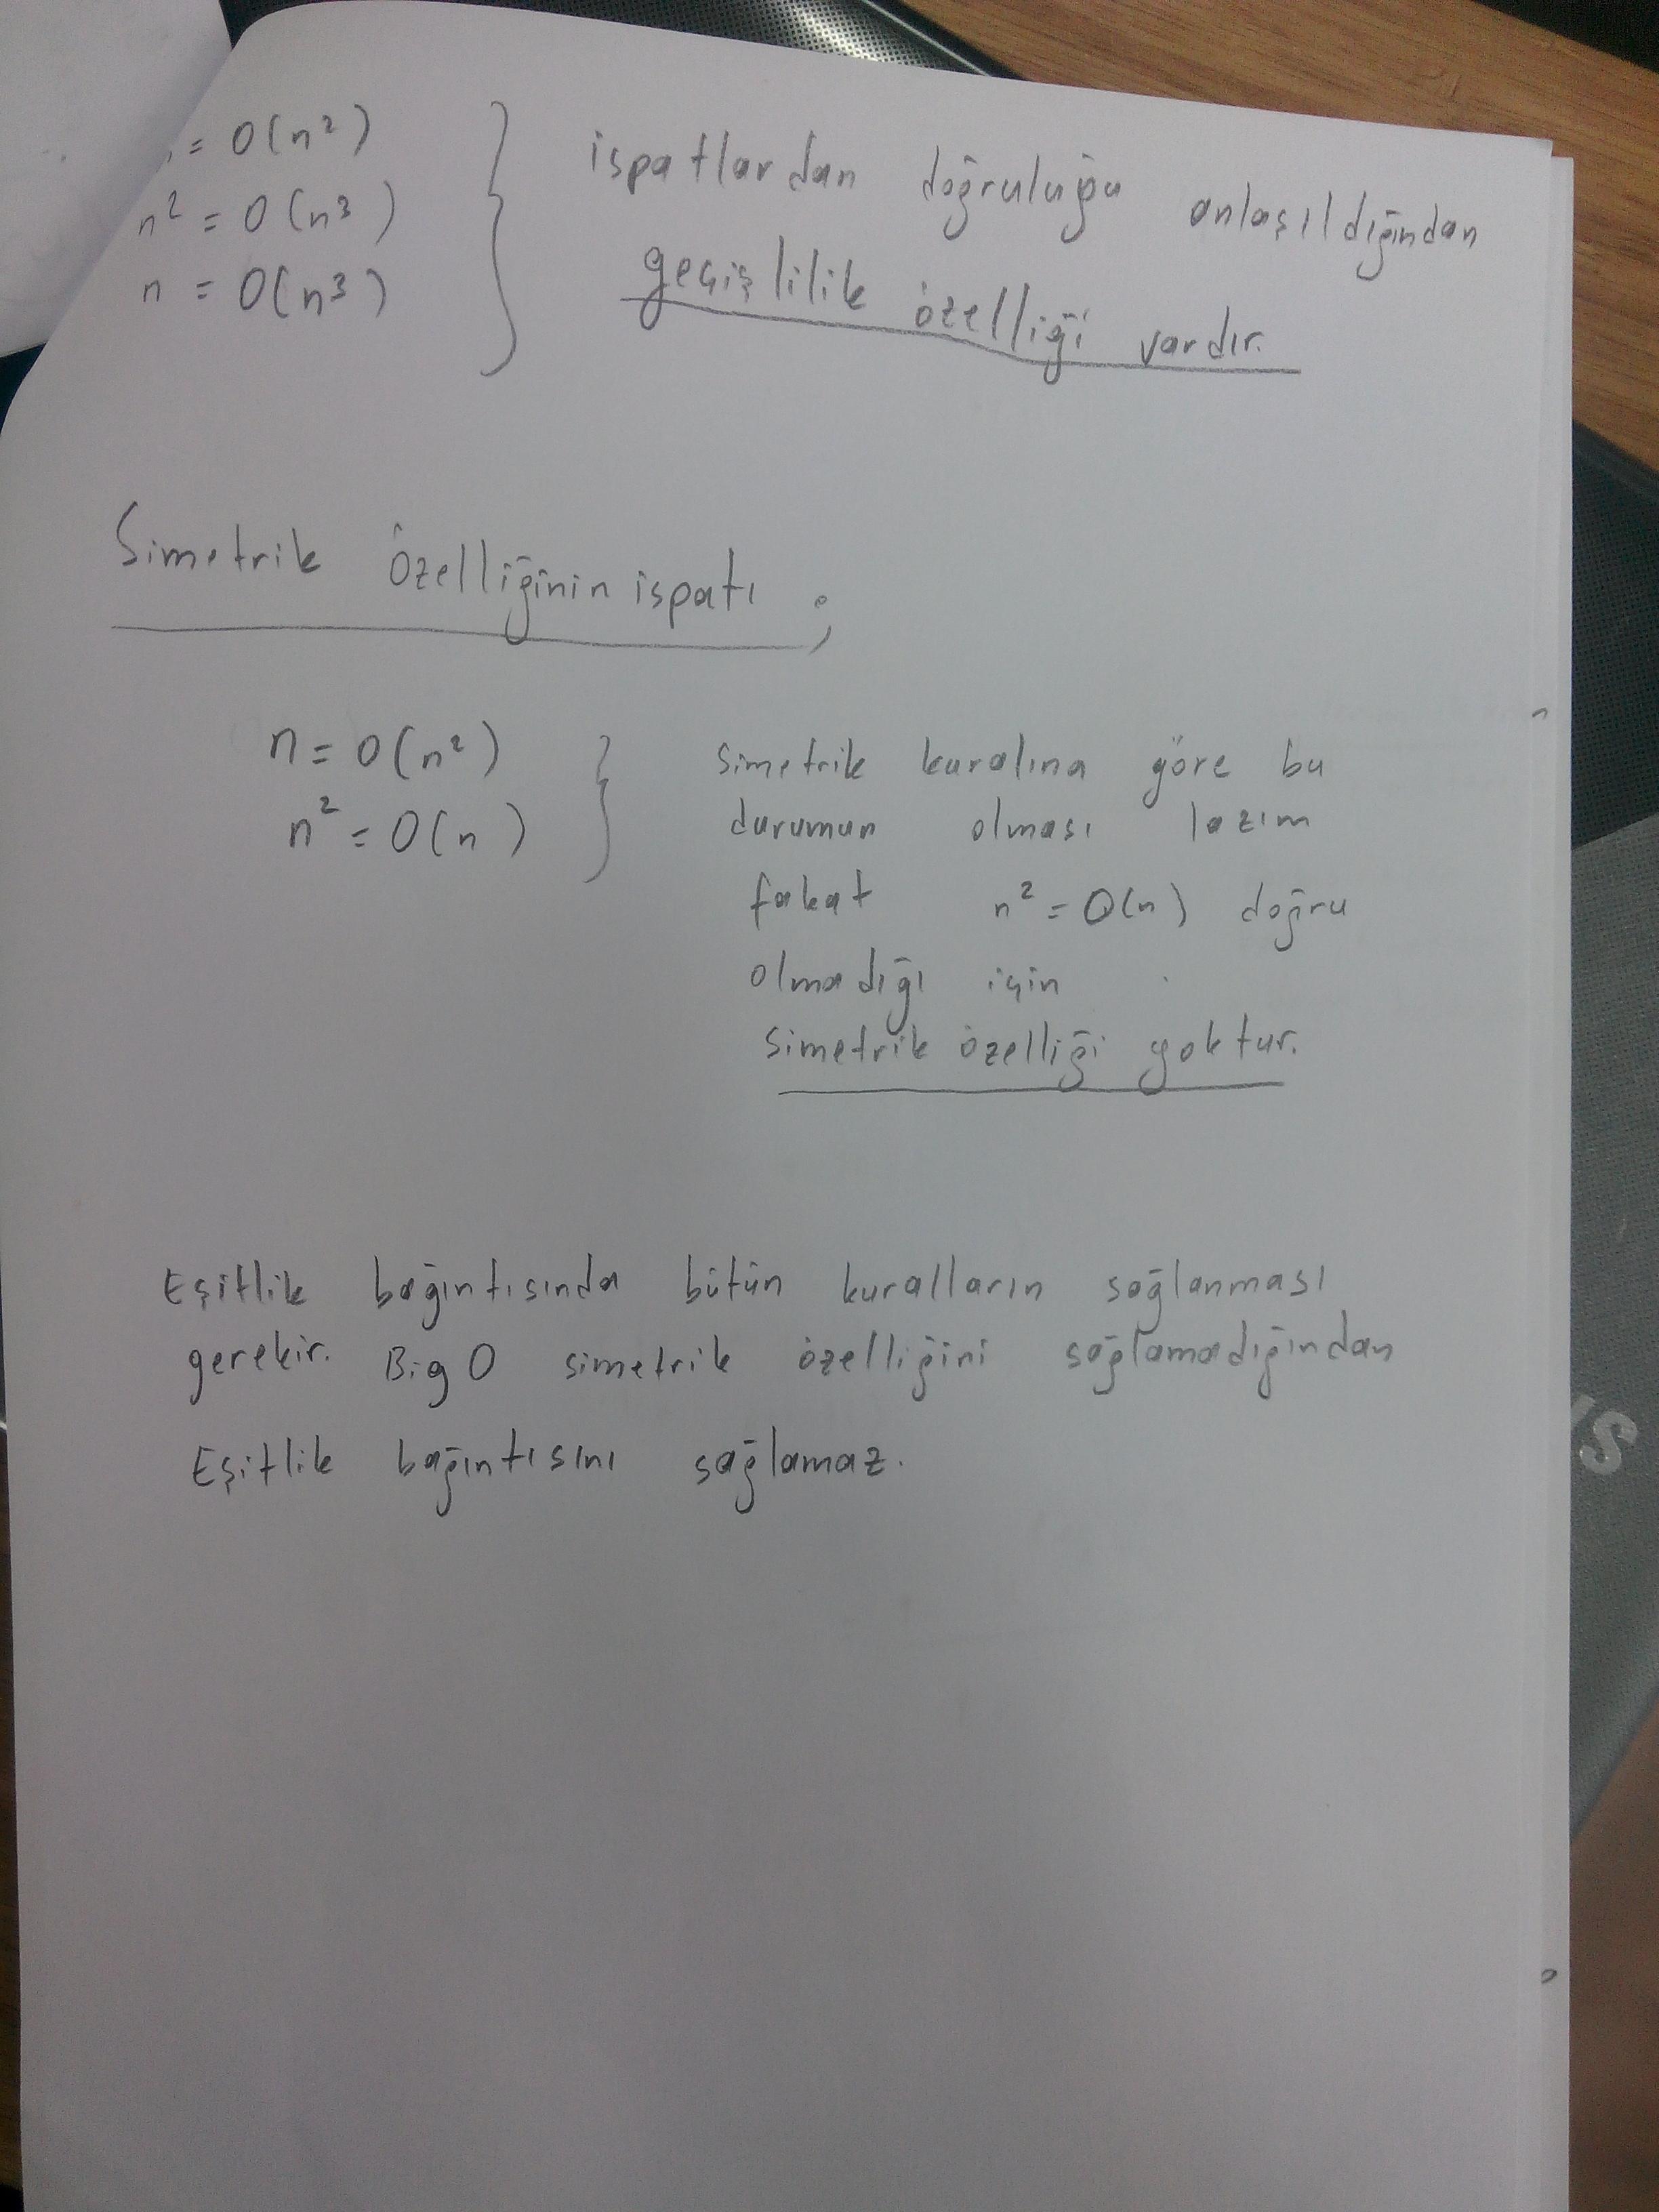 = O(n²)
n² = O(n³)
n = O(n³)
ispatlardan doğruluğu anlaşıldığından
geçişlilik özelliği vardır.
Simetrik Özelliğinin ispatı ;
n = O(n²)
n² = O(n)
simetrik kuralına göre bu
durumun olması lazım
fakat n² = O(n) doğru
olmadığı için
simetrik özelliği yoktur.
Eşitlik bağıntısında bütün kuralların sağlanması
gerekir. Big O simetrik özelliğini sağlamadığından
Eşitlik bağıntısını sağlamaz.